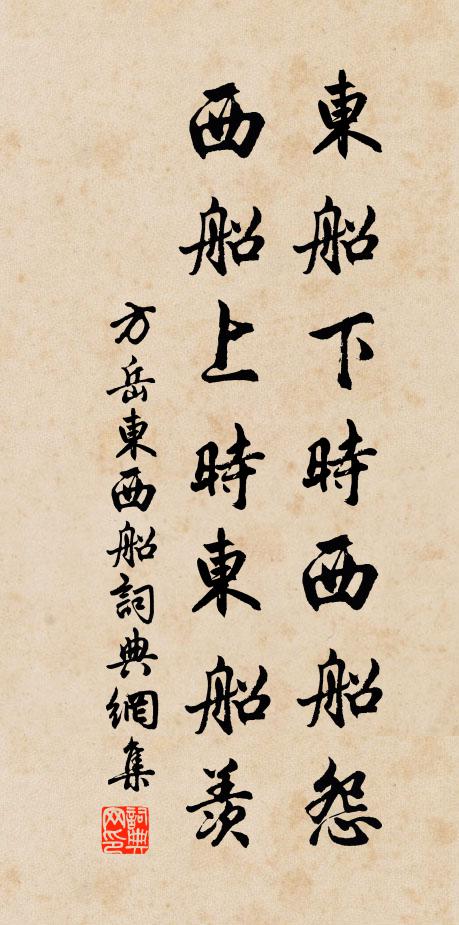 東船下時西船怨
西船上時東船羨
方岳東西船詞典網集
詞典網印